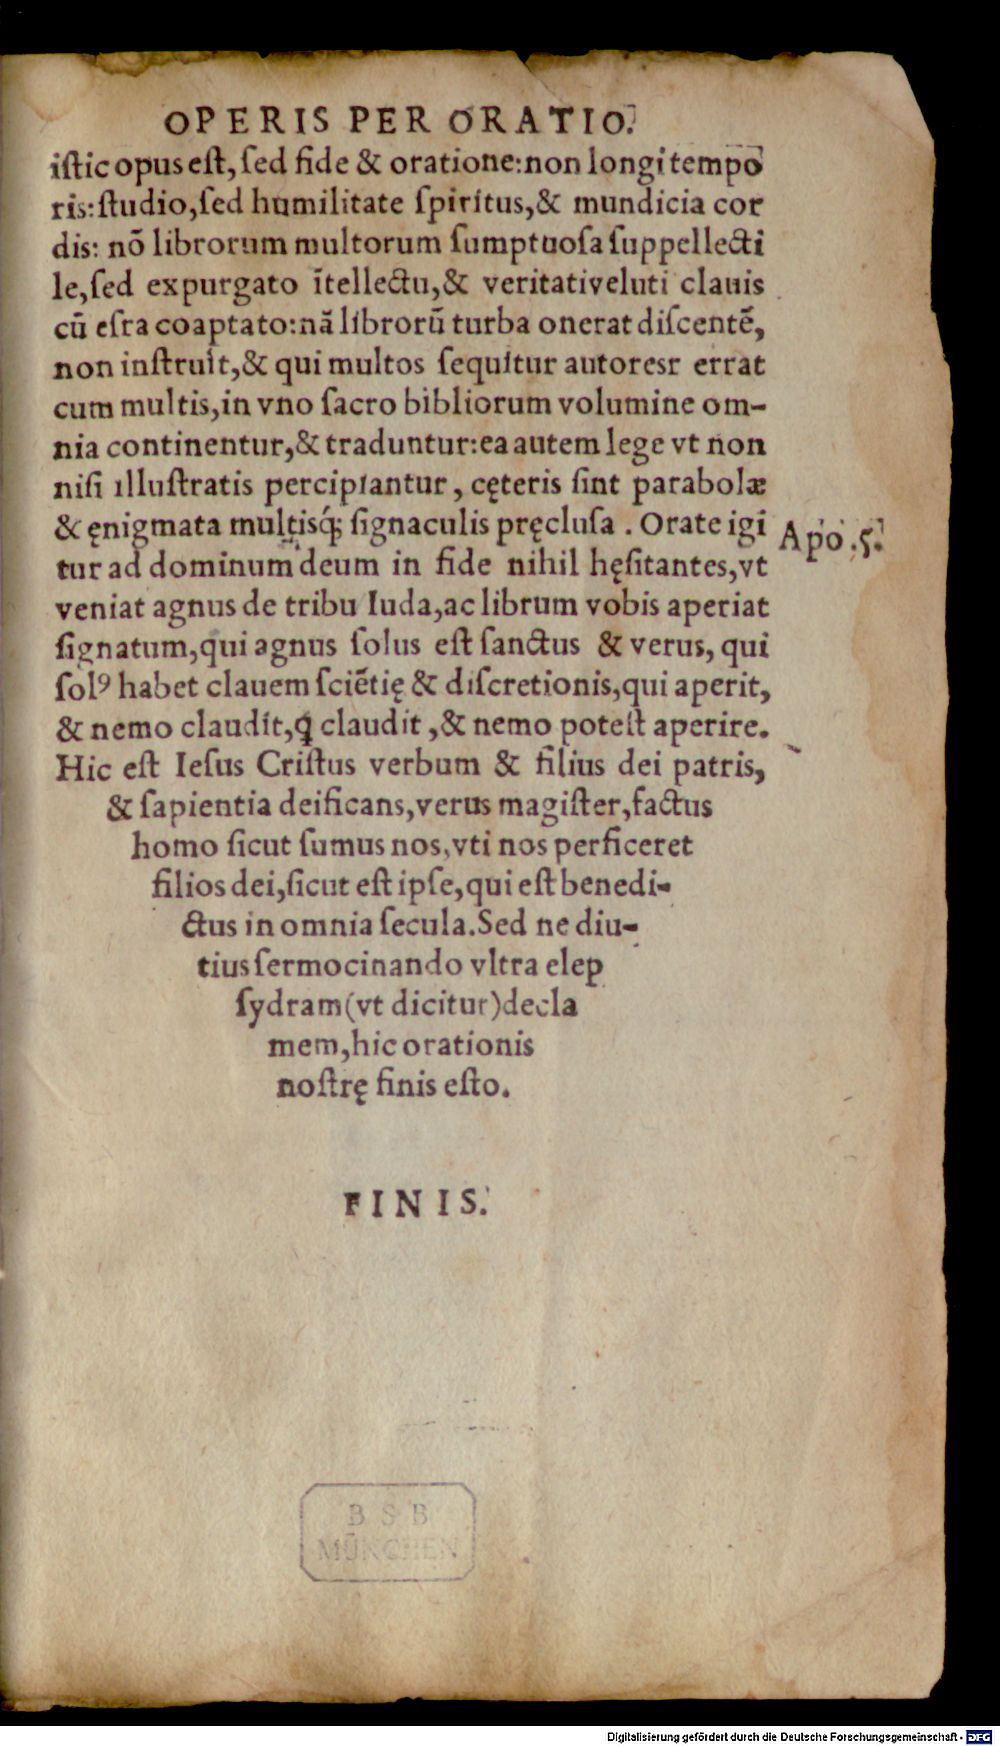 OPERIS PER ORATIO.
iſtic opus eſt, ſed fide & oratione: non longi tempo
ris: ſtudio, ſed humilitate ſpiritus, & mundicia cor
dis: nõ librorum multorum ſumptuoſa ſuppellecti
le, ſed expurgato ĩtellectu, & veritati veluti clauis
cũ eſra coaptato: nã librorũ turba onerat diſcentẽ,
non inſtruit, & qui multos ſequitur autoresr errat
cum multis, in vno ſacro bibliorum volumine om-
nia continentur, & traduntur: ea autem lege vt non
niſi illuſtratis percipiantur, cęteris ſint parabolæ
& ęnigmata multisq́; ſignaculis pręcluſa. Orate igi
Apo. 5.
tur ad dominum deum in fide nihil hęſitantes, vt
veniat agnus de tribu Iuda, ac librum vobis aperiat
ſignatum, qui agnus ſolus eſt ſanctus & verus, qui
ſolꝰ habet clauem ſciẽtię & diſcretionis, qui aperit,
& nemo claudit, q̃ claudit, & nemo poteſt aperire.
Hic eſt Ieſus Criſtus verbum & filius dei patris,
& ſapientia deificans, verus magiſter, factus
homo ſicut ſumus nos, vti nos perficeret
filios dei, ſicut eſt ipſe, qui eſt benedi-
ctus in omnia ſecula. Sed ne diu-
tius ſermocinando vltra elep
ſydram (vt dicitur) decla
mem, hic orationis
noſtrę finis eſto.
FINIS.
B S B
MÜNCHEN
Digitalisierung gefördert durch die Deutsche Forschungsgemeinschaft - DFG